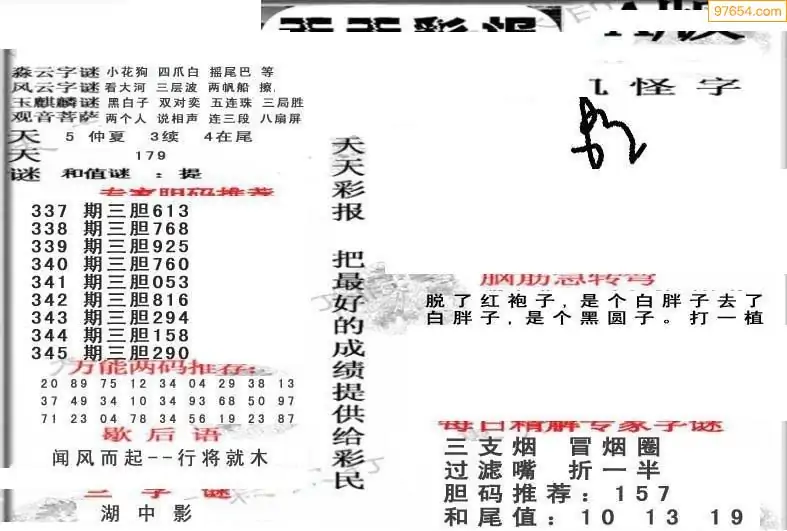 97654.com
天天彩报
淼云字谜 小花狗 四爪白 摇尾巴 等
风云字谜 看大河 三层波 两帆船 擦
玉麒麟谜 黑白子 双对奕 五连珠 三局胜
观音菩萨 两个人 说相声 连三段 八扇屏
天 5 仲夏 3续 4在尾
天 179
谜 和值谜 : 提
专家胆码推荐
337 期三胆613
338 期三胆768
339 期三胆925
340 期三胆760
341 期三胆053
342 期三胆816
343 期三胆294
344 期三胆158
345 期三胆290
万能两码推荐:
20 89 75 12 34 04 29 38 13
37 49 34 10 34 93 68 50 97
71 23 04 78 34 56 19 23 87
歇后语
闻风而起--行将就木
三字谜
湖中影
天天彩报 把最好的成绩提供给彩民
怪字
脑筋急转弯
脱了红袍子,是个白胖子去了
白胖子,是个黑圆子。打一植
每日精解专家字谜
三支烟 冒烟圈
过滤嘴 折一半
胆码推荐: 157
和尾值: 10 13 19